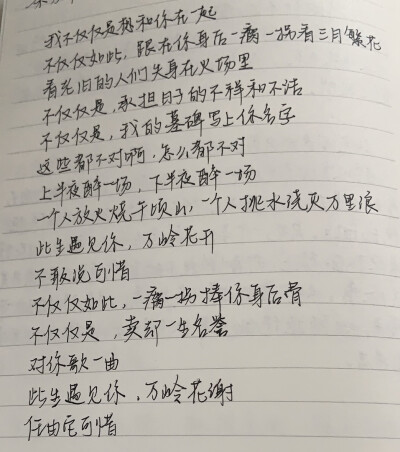 我不仅仅是想和你在一起
不仅仅如此，跟在你身后一瘸一拐看三月繁花
看光旧的人们失身在火场里
不仅仅是，承担日子的不祥和不洁
不仅仅是，我的墓碑写上你名字
这些都不对啊，怎么都不对
上半夜醉一场，下半夜醉一场
一个人放火烧千顷山，一个人挑水浇灭万里浪
此生遇见你，万岭花开
不敢说可惜
不仅仅如此，一瘸一拐捧你身后骨
不仅仅是，卖却一生名誉
对你歌一曲
此生遇见你，万岭花谢
任由它可惜